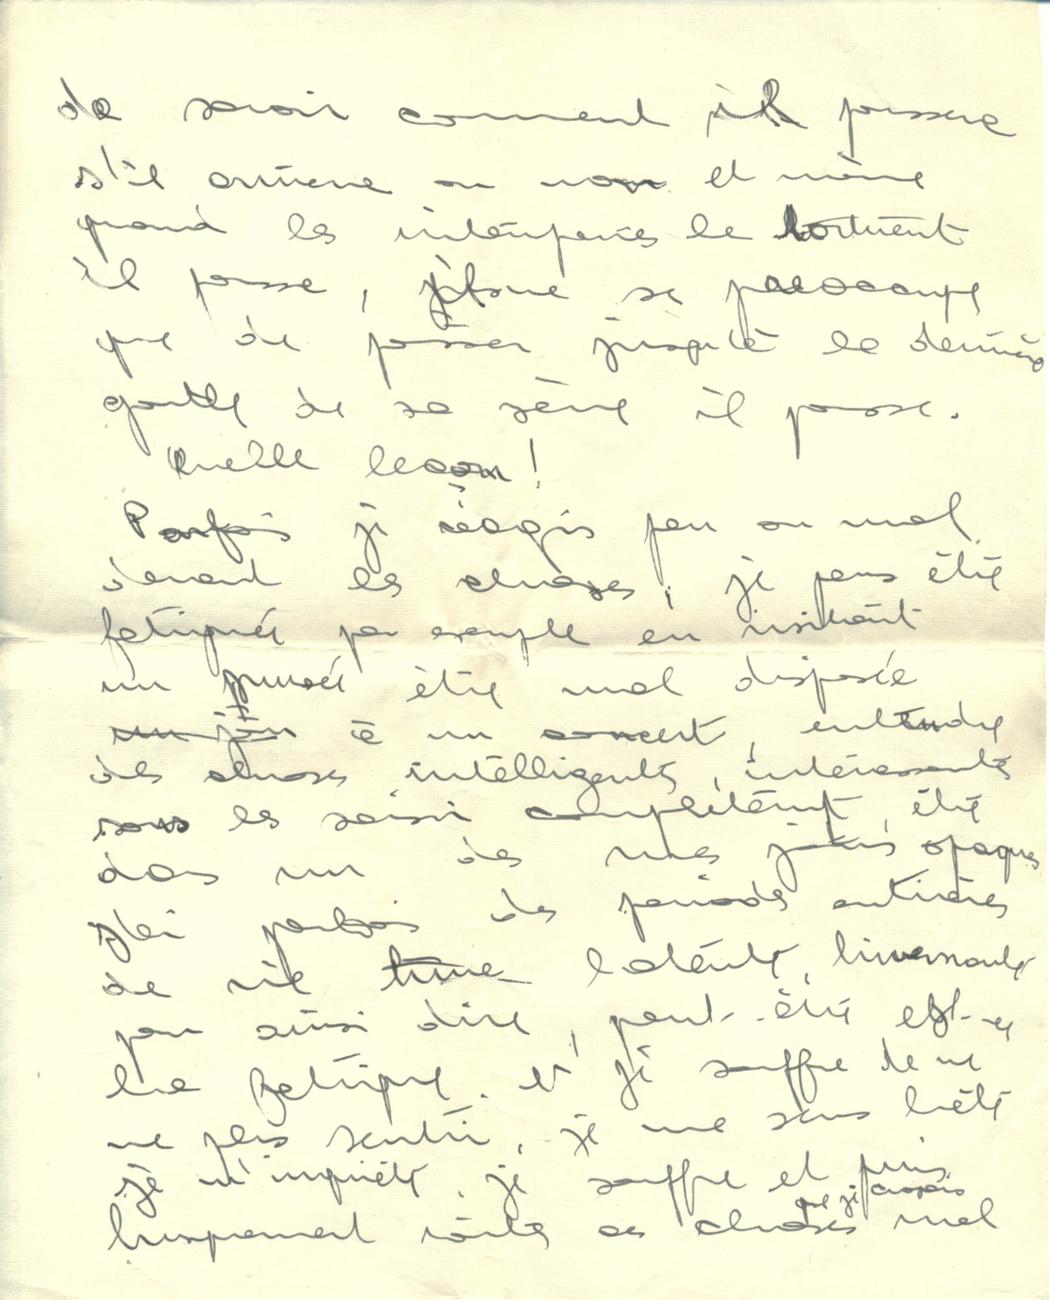 de savoir comment il poussera
s'il arrivera ou non et même
quand les intempéries le tortûrent
il pousse, il ne se préoccupe
que de pousser jusqu'à la dernière
goutte de sa sève il pousse.
Quelle leçon!
Parfois je réagis peu ou mal
devant les choses, je peux être
fatiguée par exemple en visitant
un musée être mal disposée
un jour à un concert, entendre
des choses intelligentes, intéressantes
sans les saisir complètement, être
dans un des mes jours opaques
J'ai parfois des périodes entières
de vie latente, hivernante
pour ainsi dire, peut-être est-ce
la fatigue. et je souffre de ne
ne pas sentir, je me sens bête
je m'inquiète, je souffre et puis
brusquement toutes ces choses que je croyais mal